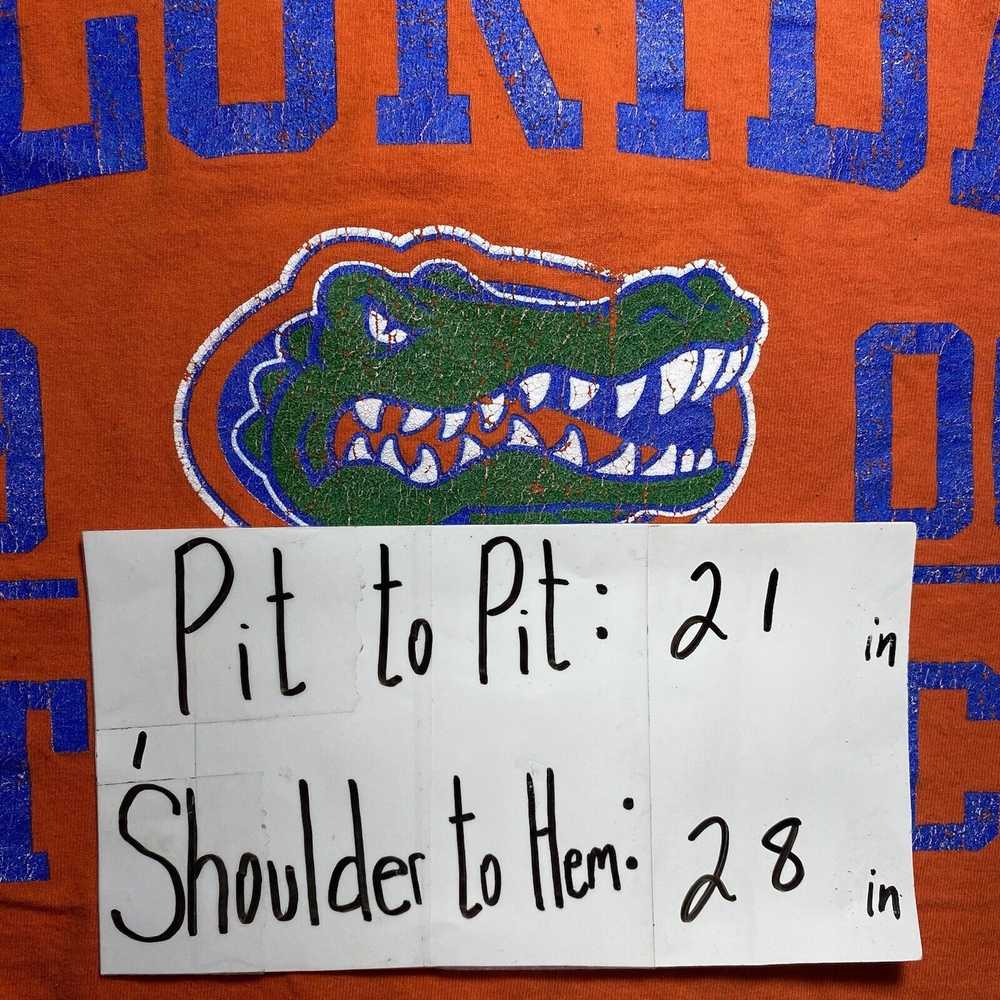 FLORIDA
Pit to Pit: 21 in
Shoulder to Hem: 28 in